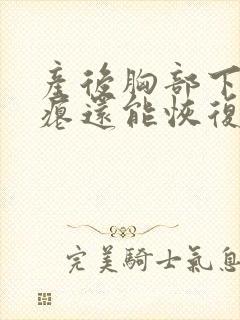 產後胸部下
瘪還能恢復
完美騎士氣息